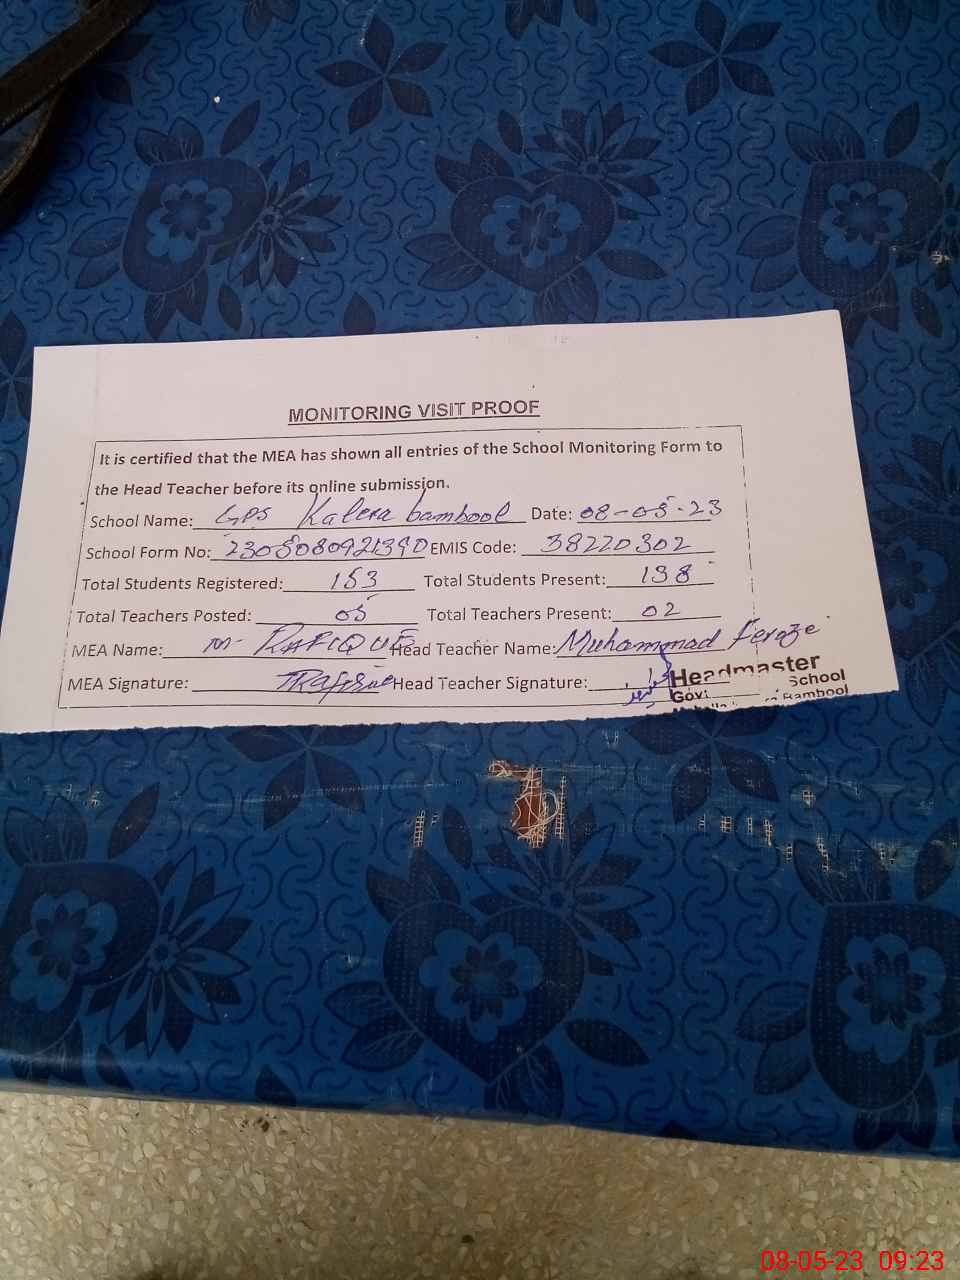 MONITORING VISIT PROOF
It is certified that the MEA has shown all entries of the School Monitoring Form to
the Head Teacher before its online submission.
School Name: GPS Kalera bambool Date: 08-05-23
School Form No: 230508092139D EMIS Code: 38220302
Total Students Registered: 153 Total Students Present: 138
Total Teachers Posted: 05 Total Teachers Present: 02
MEA Name: M- RAFIQUE Head Teacher Name: Muhammad Feroze
MEA Signature: MRafique Head Teacher Signature:
Headmaster
School
Bambool
08-05-23 09:23